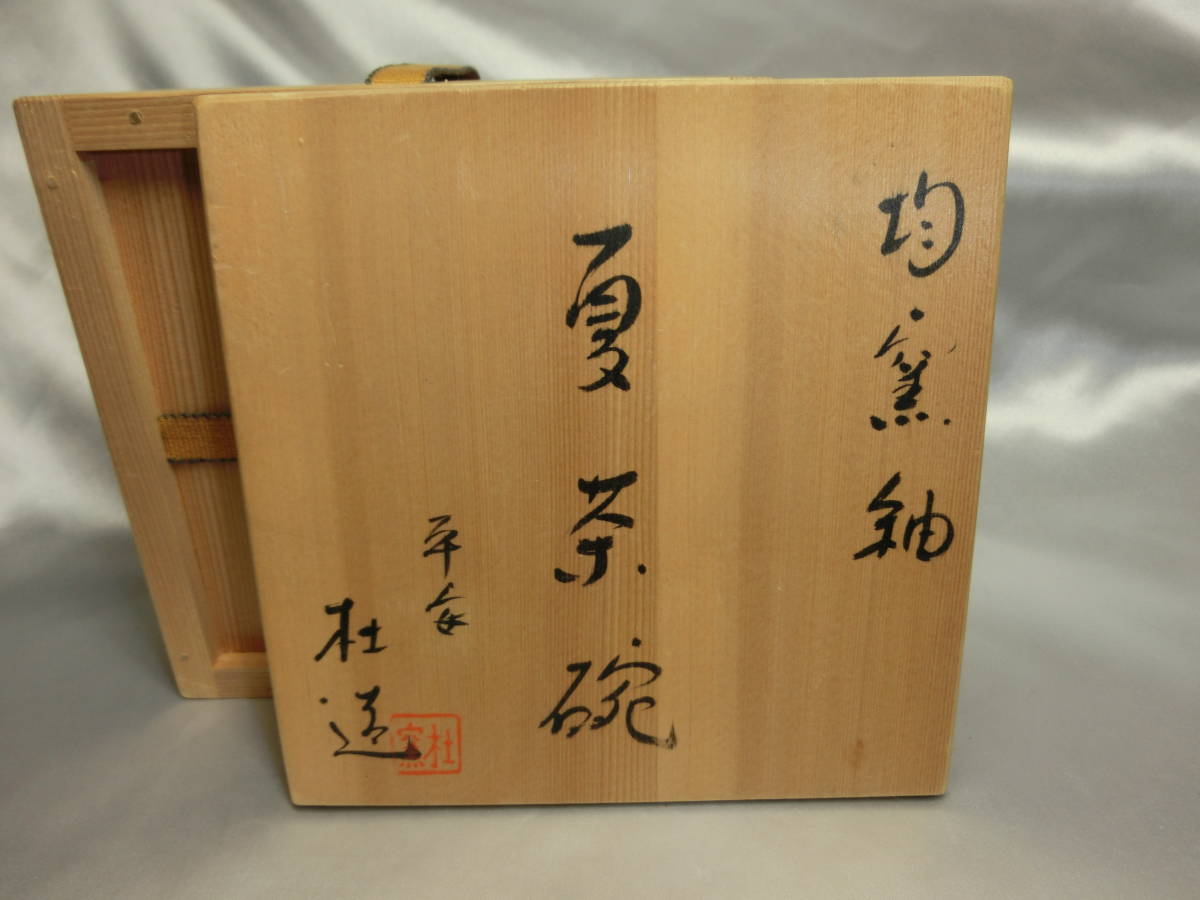 均窯釉
夏茶碗
平安
杜道
杜窯